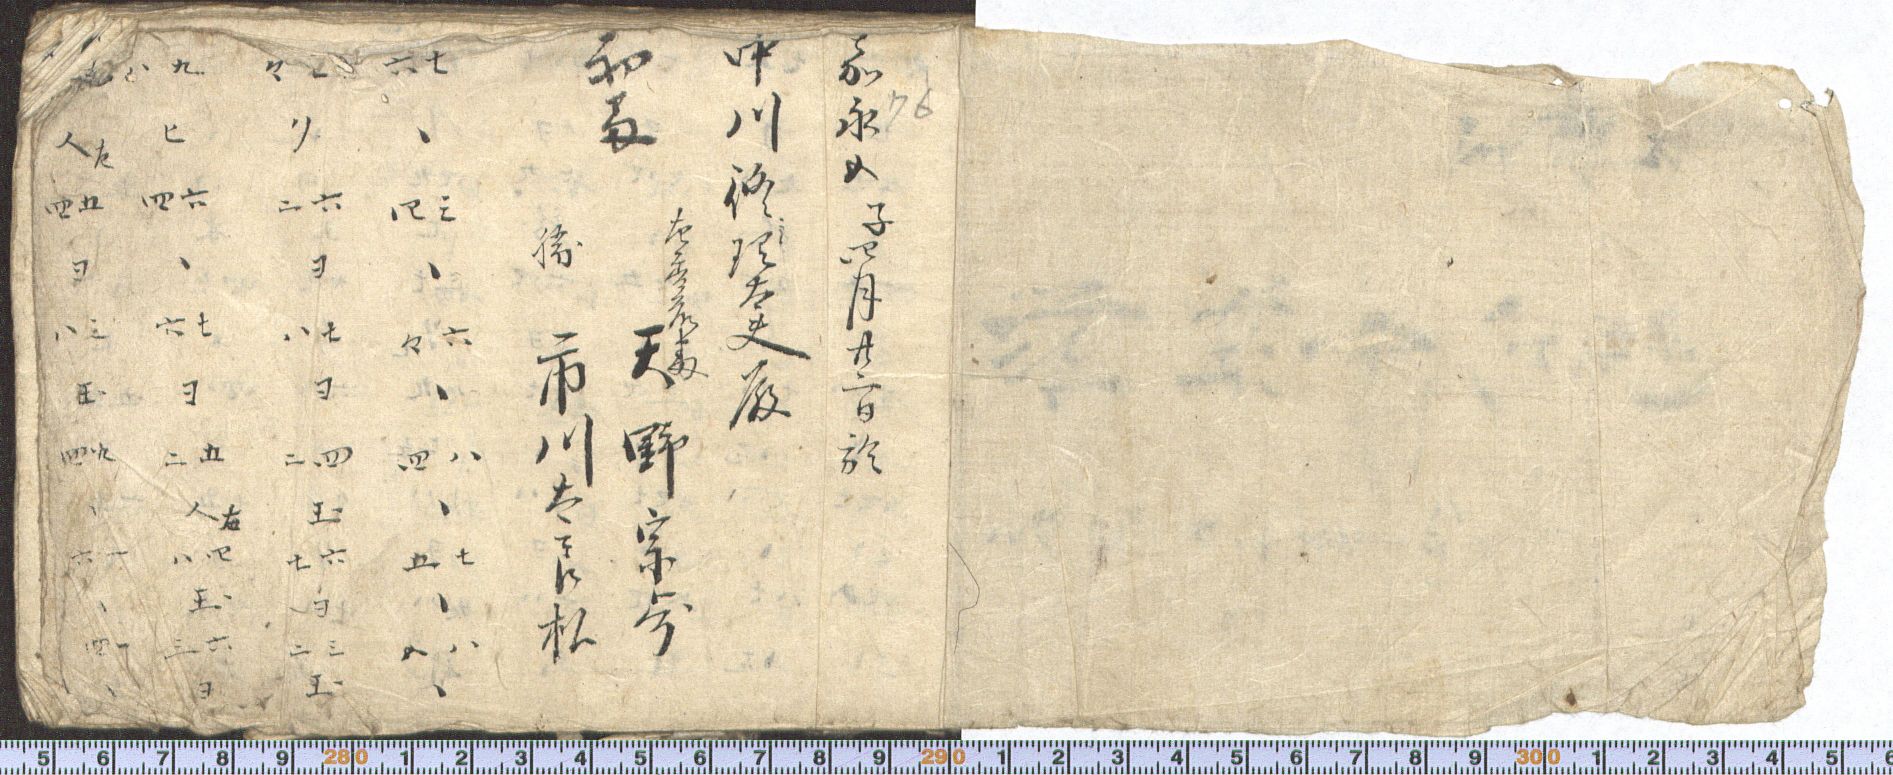 嘉永五 子四月廿二日於
76
中川修理大夫殿
天野宗歩
勝 市川太郎松
七六 、 三四 、 六々 、 八四 、 七五 、 八五 、
七々 リ 六二 ヨ 七八 ヨ 四二 玉 六七 ヨ 三二 玉
九八 ヒ 六四 、 七六 ヨ 五二 右人 四八 玉 六三 ヨ
左人 五四 ヨ 三八 玉 九四 、 一六 、 一四 、
5 6 7 8 9 280 1 2 3 4 5 6 7 8 9 290 1 2 3 4 5 6 7 8 9 300 1 2 3 4 5 6